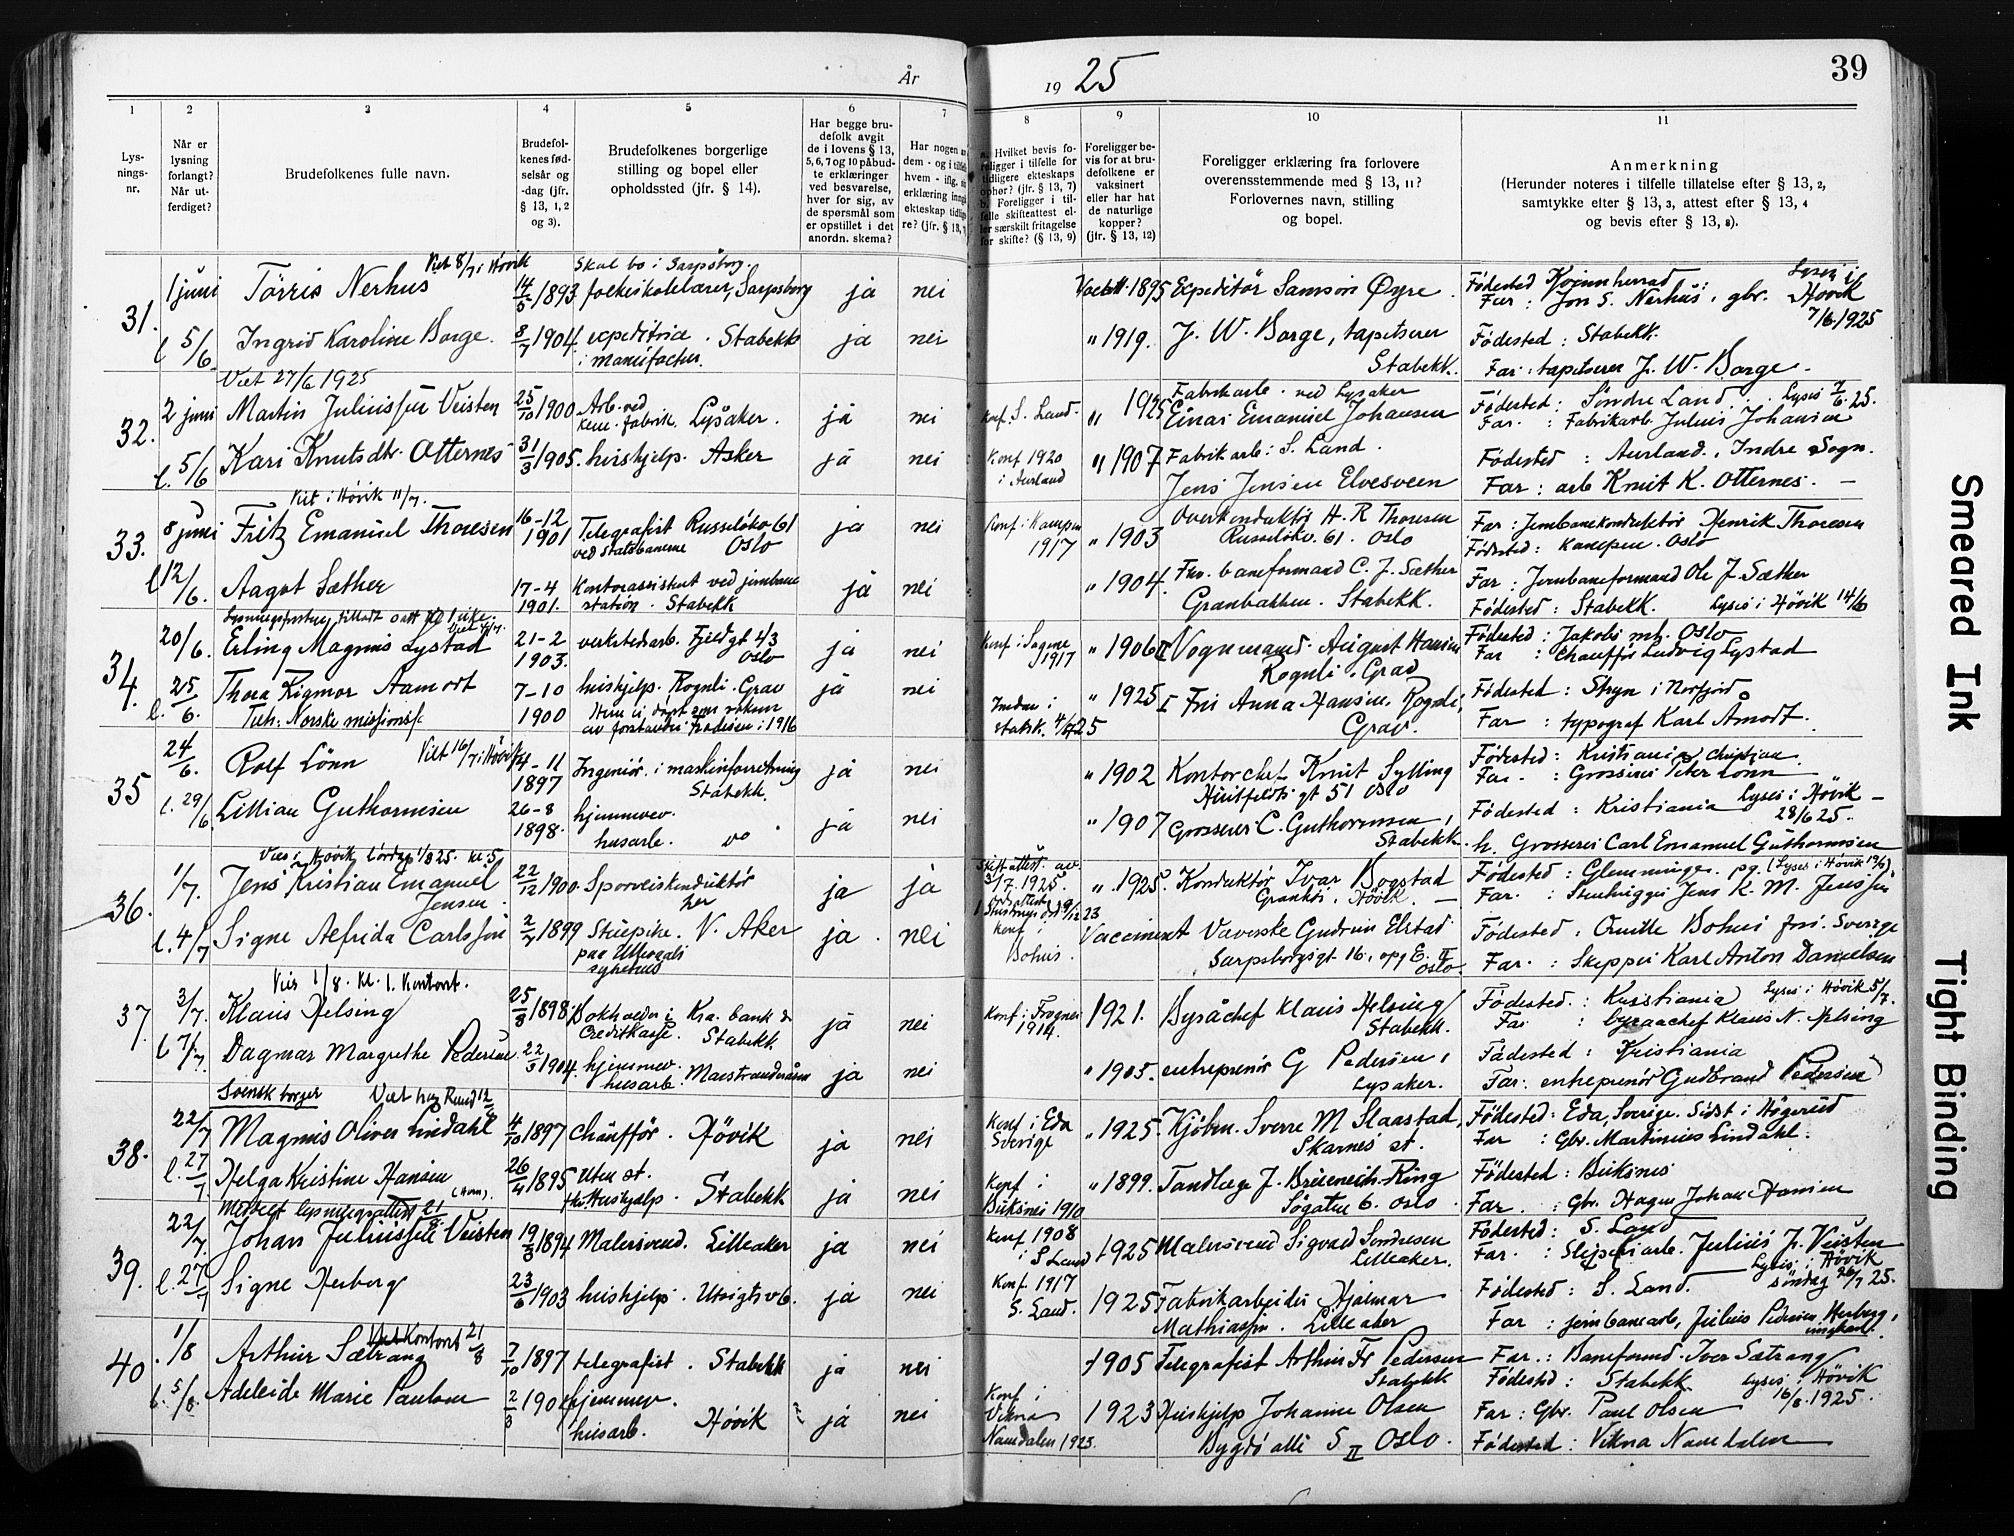 År 1925
39
1 2 3 4 5 6 7 8 9 10 11
Lys-
nings-
nr.
Når er
lysning
forlangt?
Når ut-
ferdiget?
Brudefolkenes fulle navn.
Brudefol-
kenes fød-
selsår og
-dag (jfr.
§ 13, 1, 2
og 3).
Brudefolkenes borgerlige
stilling og bopel eller
opholdssted (jfr. § 14).
Har begge bru-
defolk avgit
de i lovens § 13,
5, 6, 7 og 10 påbud-
te erklæringer
ved besvarelse,
hver for sig, av
de spørsmål som
er opstillet i det
anordn. skema?
Har nogen av
dem - og i tilfelle
hvem - iflg.
erklæring inngå
ekteskap tidlig
re? (jfr. § 13,
a. Hvilket bevis fo-
religger i tilfelle for
tidligere ekteskaps
ophør? (jfr. § 13, 7)
b. Foreligger i til-
felle skifteattest el-
ler særskilt fritagelse
for skifte? (§ 13, 9)
Foreligger be-
vis for at bru-
defolkene er
vaksinert
eller har hat
de naturlige
kopper?
(jfr. § 13, 12)
Foreligger erklæring fra forlovere
overensstemmende med § 13, 11?
Forlovernes navn, stilling
og bopel.
Anmerkning
(Herunder noteres i tilfelle tillatelse efter § 13, 2,
samtykke efter § 13, 3, attest efter § 13, 4
og bevis efter § 13, 8).
Viet 8/7 i Høvik
Skal bo i Sarpsborg.
31. 1 juni Törris Nerhus 14/5 1893 folkeskolelærer, Sarpsborg ja nei 1895 Expeditör Samson Øyre. Födested Kvinnherad Lyses i
Far: Jon S. Nerhus, gbr. Hövik
7/6 1925
l 5/6 Ingrid Karoline Borge. 8/7 1904 expeditrice. Stabekk ja nei " 1919. J. W. Borge, tapetserer Födested: Stabekk.
i manufactur. Stabekk. Far: tapetserer J. W. Borge -
Viet 27/6 1925
32. 2 juni Martin Juliussen Veisten 25/10 1900 Arb. ved ja nei Konf. S. Land. " 1925 Fabrikarb. ved Lysaker Födested: Söndre Land. Lyses 7/6 25.
kem. fabrik. Lysaker. Einar Emanuel Johansen Far: Fabrikarb. Julius Johansen
l. 5/6 Kari Knutsdtr. Otternes 31/3 1905. hushjelp. Asker ja nei Konf 1920 " 1907 Fabrikarb: S. Land. Födested: Aurland. Indre Sogn.
i Aurland Jens Jensen Elvesveen Far: arb Knut K. Otternes. -
Viet i Høvik 11/7.
33. 8 juni Fritz Emanuel Thoresen 16-12 1901 Telegrafist Russeløkv 61 ja nei Konf i Kampen 1917 " 1903 Overkonduktör H. R. Thoresen Far: Jernbanekonduktör Henrik Thoresen
ved Statsbanerne Oslo Russeløkv. 61. Oslo Födested: Kampen. Oslo
l 12/6. Aagot Sæther 17-4 1901. Kontorassistent ved jernbane ja nei " 1904. Fhv. baneformand C. J. Sæther Far: Jernbaneformand Ole J. Sæther
station. Stabekk Granbakken. Stabekk. Födested: Stabekk. Lyses i Hövik 14/6
34. 20/6. Erling Magnus Lystad 21-2 1903. verkstedarb. Fjeldgt 43 Oslo ja nei Konf i Sagene 1917 " 1906 II Vognmand August Hansen Födested: Jakobs mh. Oslo
Rognli. Grav Far: Chauffør Ludvig Lystad
l. 25/6. Thora Rigmor Aamodt 7-10 1900 hushjelp. Rognli. Grav ja nei " 1925 I Frk Anna Hansen, Rognli, Födested: Stryn i Nordfjord
Tilh. Norske missjonsf. av forstander i 1916 statsk. 25 Grav. Far: typograf Karl Åmodt.
35 24/6. Rolf Lönn Viet 16/7 i Høvik 4-11 1897 Ingeniör i maskinforretning ja nei " 1902 Kontorchef Knut Sylling Födested: Kristiania Christian
Stabekk. Huitfeldts gt 51 Oslo Far: Grosserer Peter Lönn
l. 29/6 Lillian Guthormsen 26-8 1898. hjemmev. ja nei " 1907 Grosserer C. Guthormsen, Födested: Kristiania Lyses i Hövik -
husarb. do Stabekk 28/6 25.
Grosserer Carl Emanuel Guthormsen
Vies i Høvik Lördag 1/8 25. kl. 5
36. 1/7. Jens Kristian Emanuel Jensen 22/12 1900. Sporveiskonduktör ja ja Skift.attest av 7. 1925. " 1925. Konduktör Ivar Bogstad Födested: Glemminge. pg. (Lyses i Høvik 19/7).
her Høvik. - Far: Stenhugger Jens K. M. Jensen
l. 4/7 Signe Alfrida Carlsson 2/7 1899 Stuepike. V. Aker ja. nei Konf i Bohus. Vaccinert Væverske Gudrun Elstad Födested: Bohus Sverige
paa Ullevaals sykehus Sarpsborggt 16, opg E. Oslo. Far: Skipper Karl Anton Danielsen
Vies 1/8. Kl. 1. Kontoret.
37. 3/7. Klaus Helsing 25/8 1898 Bokholder i Kra. bank & ja nei Konf. i Frogner 1914. 1921. Byråchef Klaus Helsing Födested: Kristiania Lyses i Høvik 5/7.
Creditkasse. Stabekk Stabekk. Far: byraachef Klaus N. Helsing
l 7/7. Dagmar Margrethe Pedersen 22/3 1904. hjemmev. ja nei " 1905. entreprenör G Pedersen, Födested: Kristiania
husarb. Lysaker. Far: entreprenör Gudbrand Pedersen
Svensk borger
38. 22/7 Magnus Oliver Lindahl 4/10 1897 Chauffør. Hövik ja nei Konf i Eda Sverige " 1925. Kjøbm. Sverre M Slaastad, Födested: Eda, Sverige. Sidst i Högerud
Skarnes st. Far: Gbr. Martinius Lindahl.
l. 27/7 Helga Kristine Hansen 26/4 1895 Uten st. ja nei Konf i Buksnes 1910 " 1899. Tandlæge J. Breueneich-Ring Födested: Buksnes
Hushjelp. Stabekk Sögaten 6. Oslo. Far. Gbr. Hagen Johan Hansen
39. 22/7. Johan Juliussen Veisten 19/3 1894 Malersvend. Lilleaker ja nei Konf 1908 i S Land 1925 Malersvend Sigvard Sondresen Födested: S. Land
Lilleaker. Far: Sliperiarb. Julius J. Veisten
l. 27/7 Signe Herberg 23/6 1903 hushjelp. Utsigtsv 6. ja nei Konf. 1917 S. Land. 1925 Fabrikarbeider Hjalmar Födested: S. Land. Lyses i Høvik söndag 26/7 25.
Mathiassen. Lilleaker Far: jernbanearb, Julius Pedersen Herberg,
40 1/8 Arthur Sætrang Kontoret 21/8 7/10 1897 telegrafist. Stabekk ja nei 1905 Telegrafist Arthur Fr Pedersen Far: Baneformd. Iver Sætrang
Stabekk Födested: Stabekk. Lyses i Hövik
l. 5/8 Adeleide Marie Paulsen 2/3 190 hjemmev. ja nei Konf i Vikna 1923 Hushjelp Johanne Olsen Far: Gbr. Paul Olsen 16/8. 1925.
husarb. Høvik Namdalen 1923. Bygdö allé 5 II Oslo. Födested: Vikna Namdalen
Smeared Ink
Tight Binding